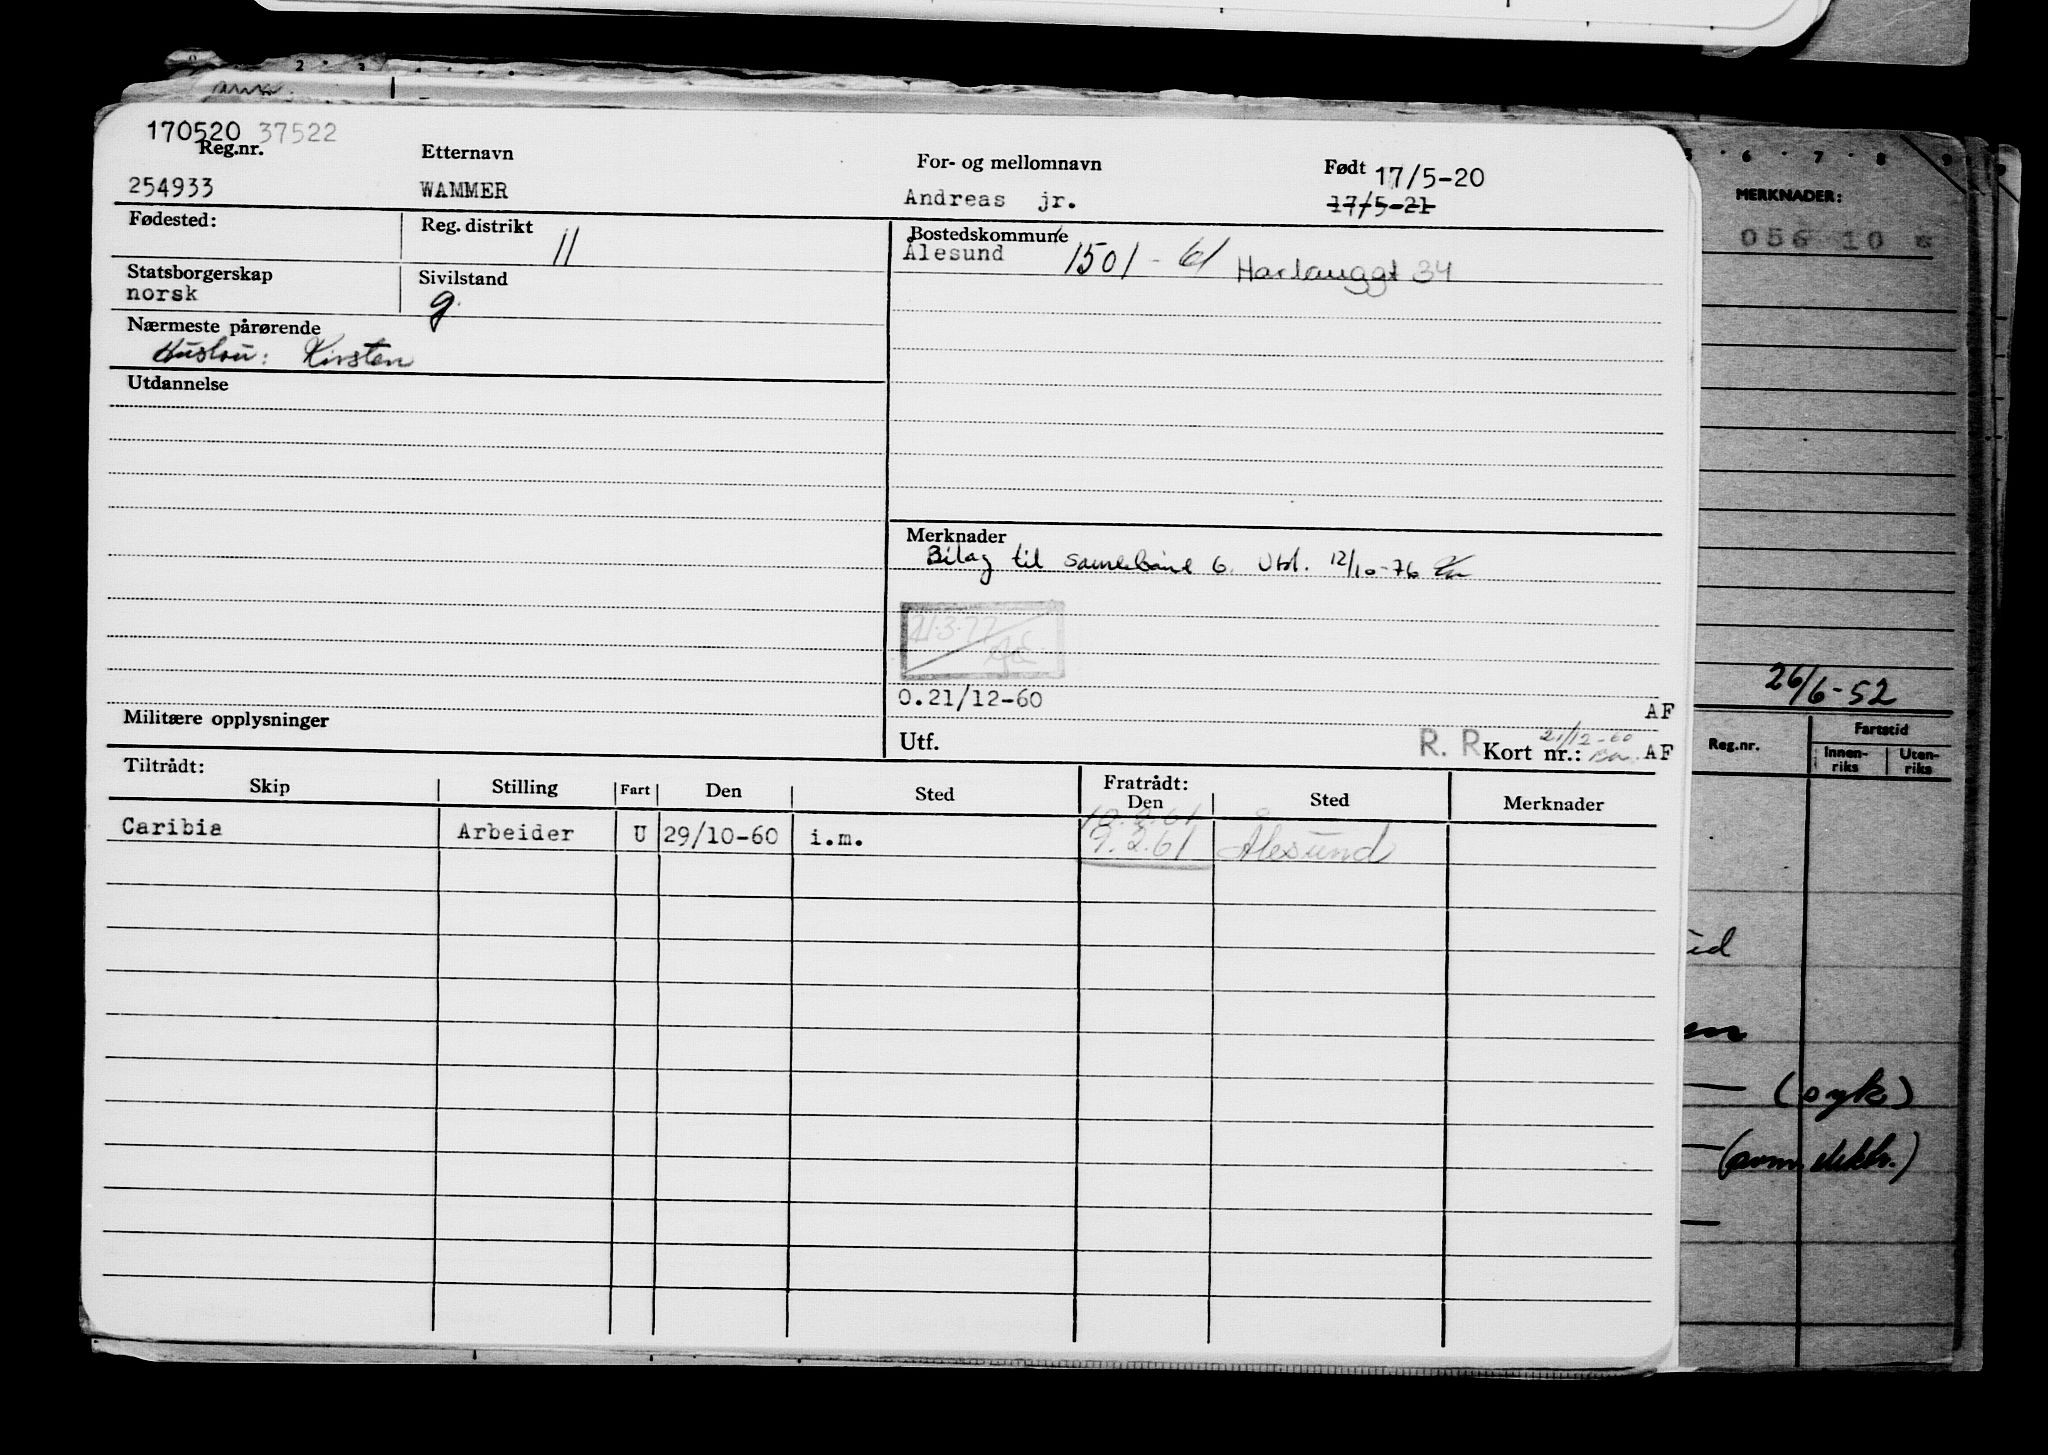 170520 37522
Reg.nr. Etternavn For- og mellomnavn Født 17/5-20
254933 WAMMER Andreas jr. 17/5-21
Fødested: Reg. distrikt 11 Bostedskommune
Ålesund 1501 - 61 Haslauggt 34
Statsborgerskap Sivilstand
norsk g.
Nærmeste pårørende
Hustru: Kirsten
Utdannelse
Merknader
Bilag til 6. Utst. 12/10-76
21.3.77
0.21/12-60 AF
Militære opplysninger
Utf. R. R Kort nr.: 21/12-60 AF
Tiltrådt: Fratrådt:
Skip Stilling Fart Den Sted Den Sted Merknader
Caribia Arbeider U 29/10-60 i.m. 9.2.61 Ålesund
5 6 7 8 9
MERKNADER:
056 10
26/6-52
Reg.nr. Fartstid
Innen-riks Uten-riks
(syk)